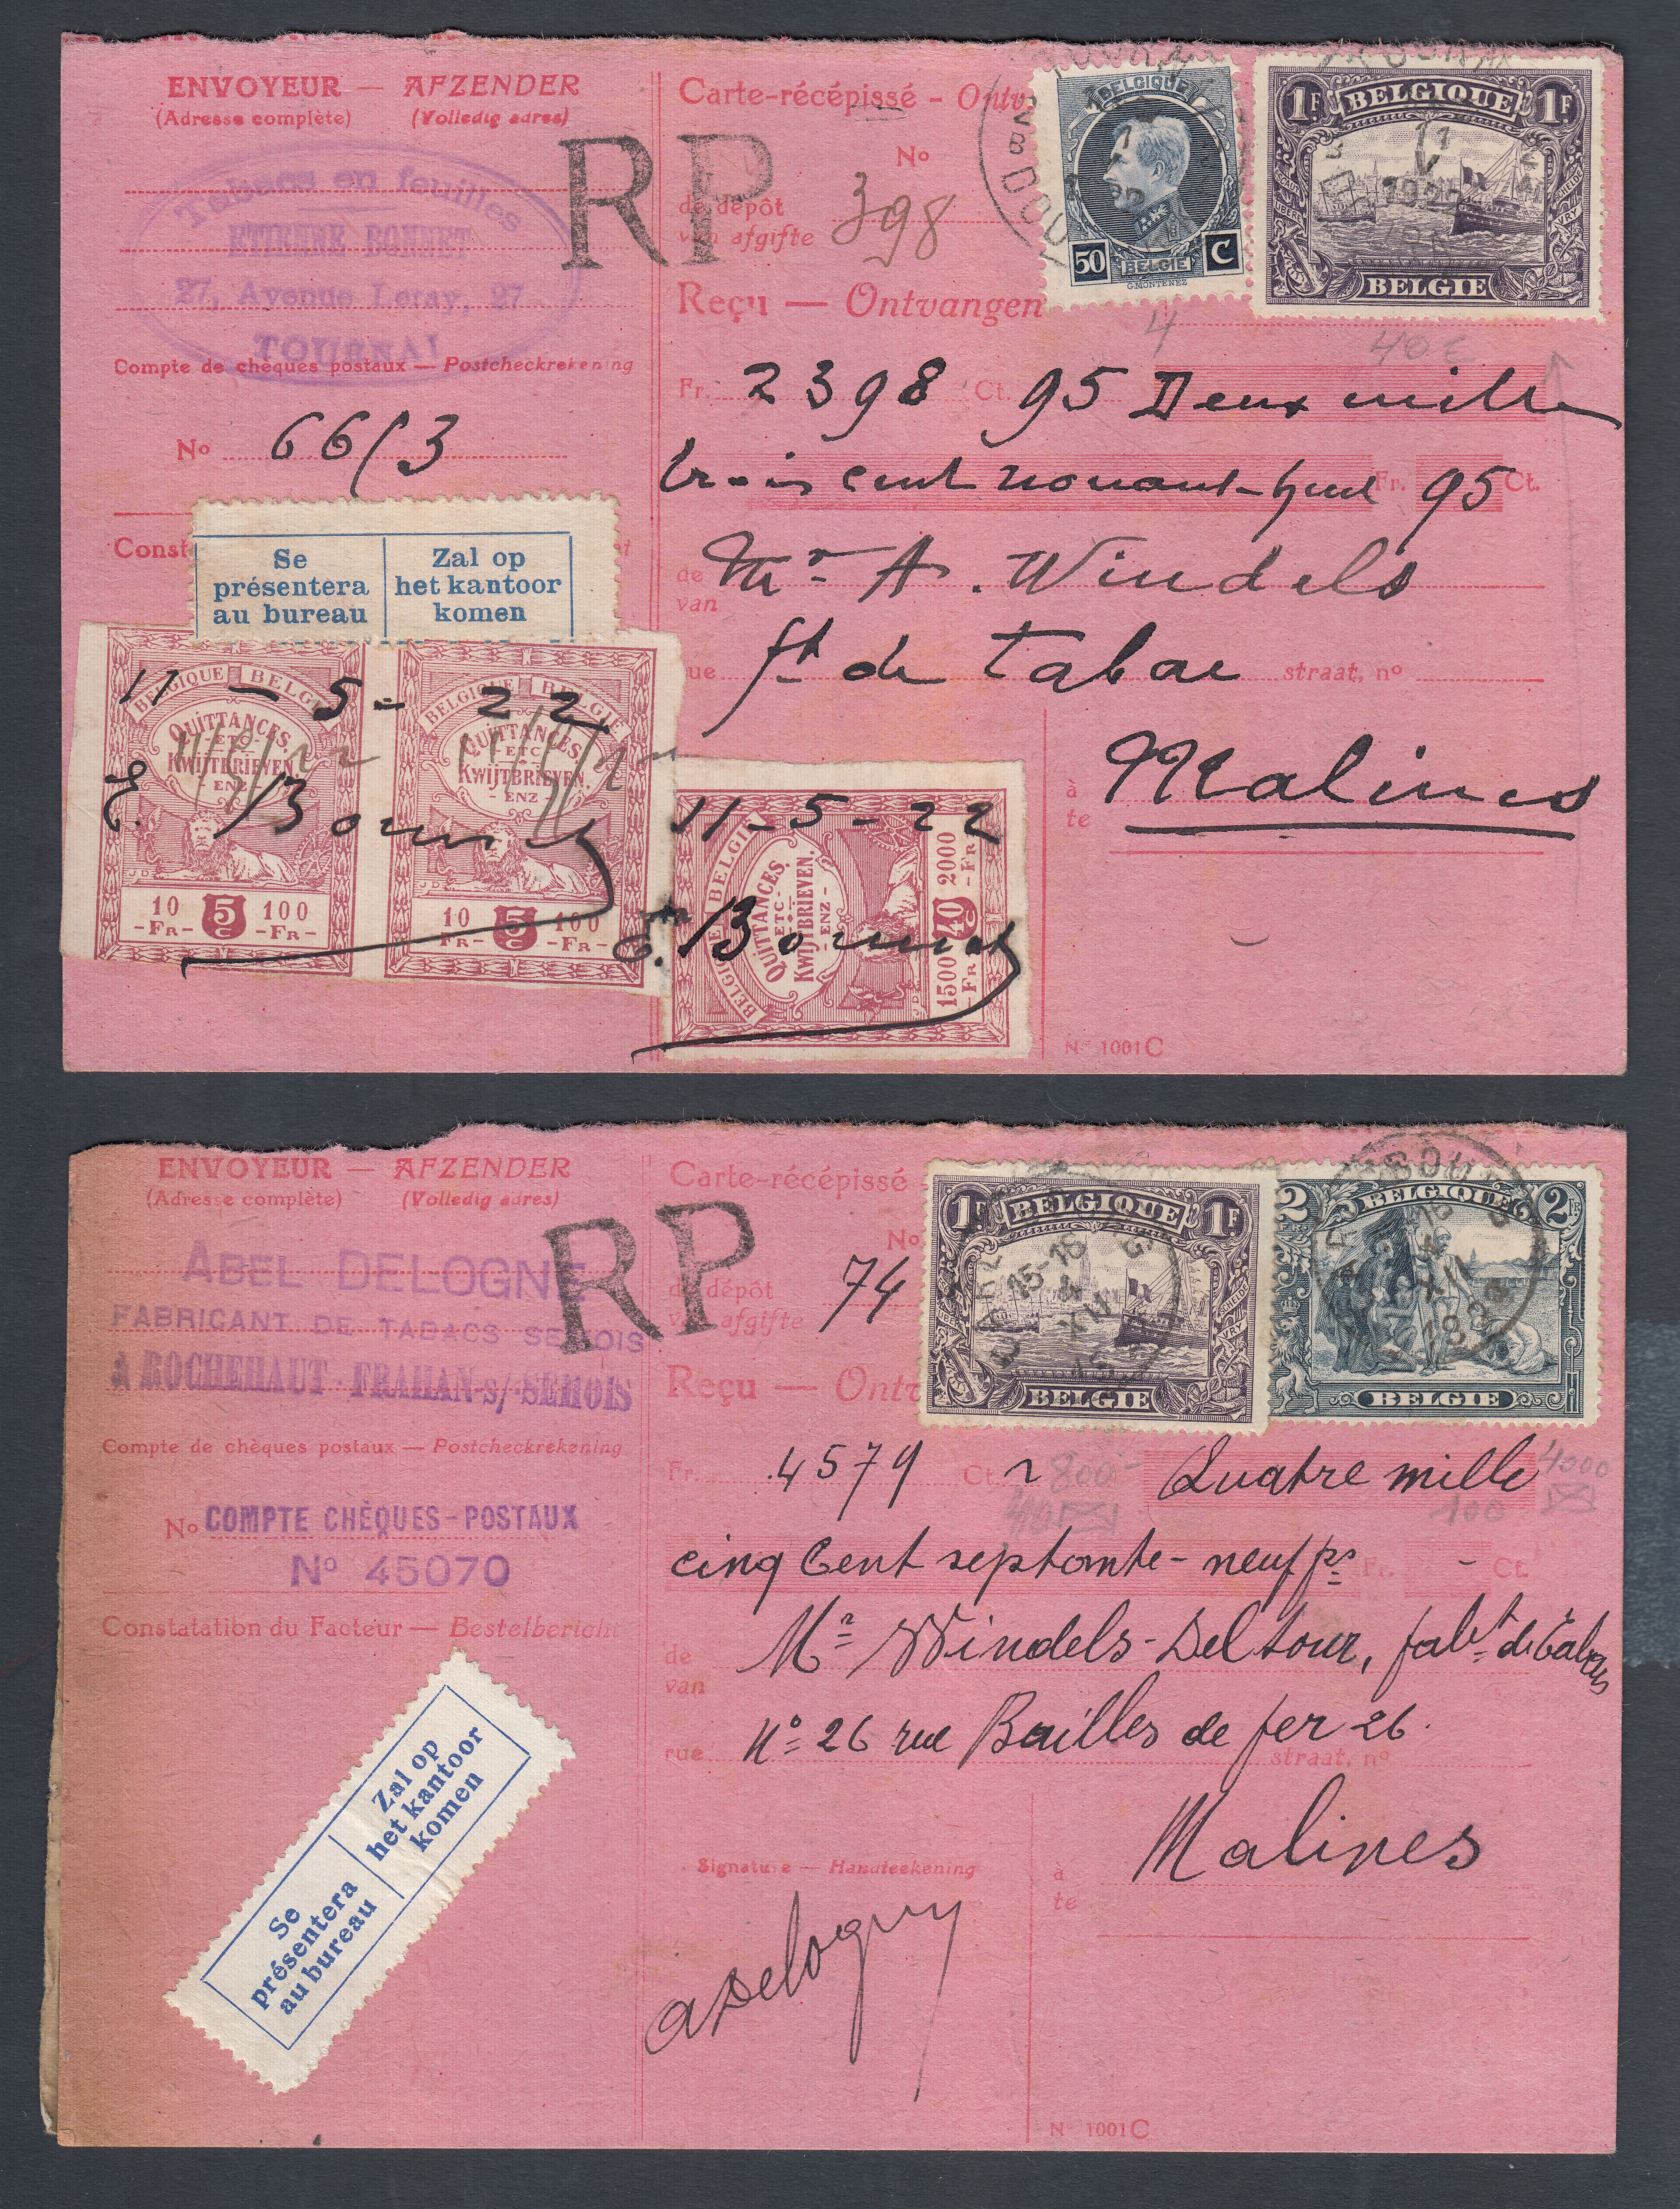 ENVOYEUR — AFZENDER
(Adresse complète) (Volledig adres)
Tabacs en feuilles
ETIENNE BONNET
27, Avenue Leray, 27
TOURNAI
Compte de chèques postaux — Postcheckrekening
No 6613
Const
Se présentera au bureau
Zal op het kantoor komen
BELGIQUE BELGIË
QUITTANCES.
-ETC-
KWIJTBRIEVEN.
-ENZ-
10 5 100
-FR- C -FR-
BELGIQUE BELGIË
QUITTANCES.
-ETC-
KWIJTBRIEVEN.
-ENZ-
10 5 100
-FR- C -FR-
11 - 5 - 22
E. Bonnet
RP
Carte-récépissé - Ontv
No
de dépôt
van afgifte 398
Reçu — Ontvangen
BELGIQUE
50 BELGIE C
G.MONTENEZ
1F BELGIQUE 1F
BELGIE
11
V
1922
4
40 c
Fr. 2398 Ct. 95 Deux mille
trois cent nonant-huit Fr. 95 Ct.
de
van Mr A. Windels
ue ft de Tabac straat, no
à
te Malines
BELGIQUE BELGIË
QUITTANCES.
-ETC-
KWIJBRIEVEN.
-ENZ-
1500 40 2000
-FR- C -FR-
11-5-22
E. Bonnet
No 1001C
ENVOYEUR — AFZENDER
(Adresse complète) (Volledig adres)
ABEL DELOGNE
FABRICANT DE TABACS SEMOIS
A ROCHEHAUT-FRAHAN-s/-SEMOIS
Compte de chèques postaux — Postcheckrekening
No COMPTE CHÈQUES-POSTAUX
No 45070
Constatation du Facteur — Bestelbericht
Se présentera au bureau
Zal op het kantoor komen
RP
Carte-récépissé
No
de dépôt
van afgifte 74
Reçu — Ontv
1F BELGIQUE 1F
BELGIE
15-16
4
XII
2FR BELGIQUE 2FR
BELGIE
Fr. 4579 Ct. Quatre mille
800-
4000
100
cinq cent septante-neuf frs Fr. - Ct.
de
van Mr Windels-Deltour, fabt de Tabacs
rue No 26 rue Bailles de fer 26. straat, no
Signature — Handteekening
à
te Malines
ADelogne
No 1001C